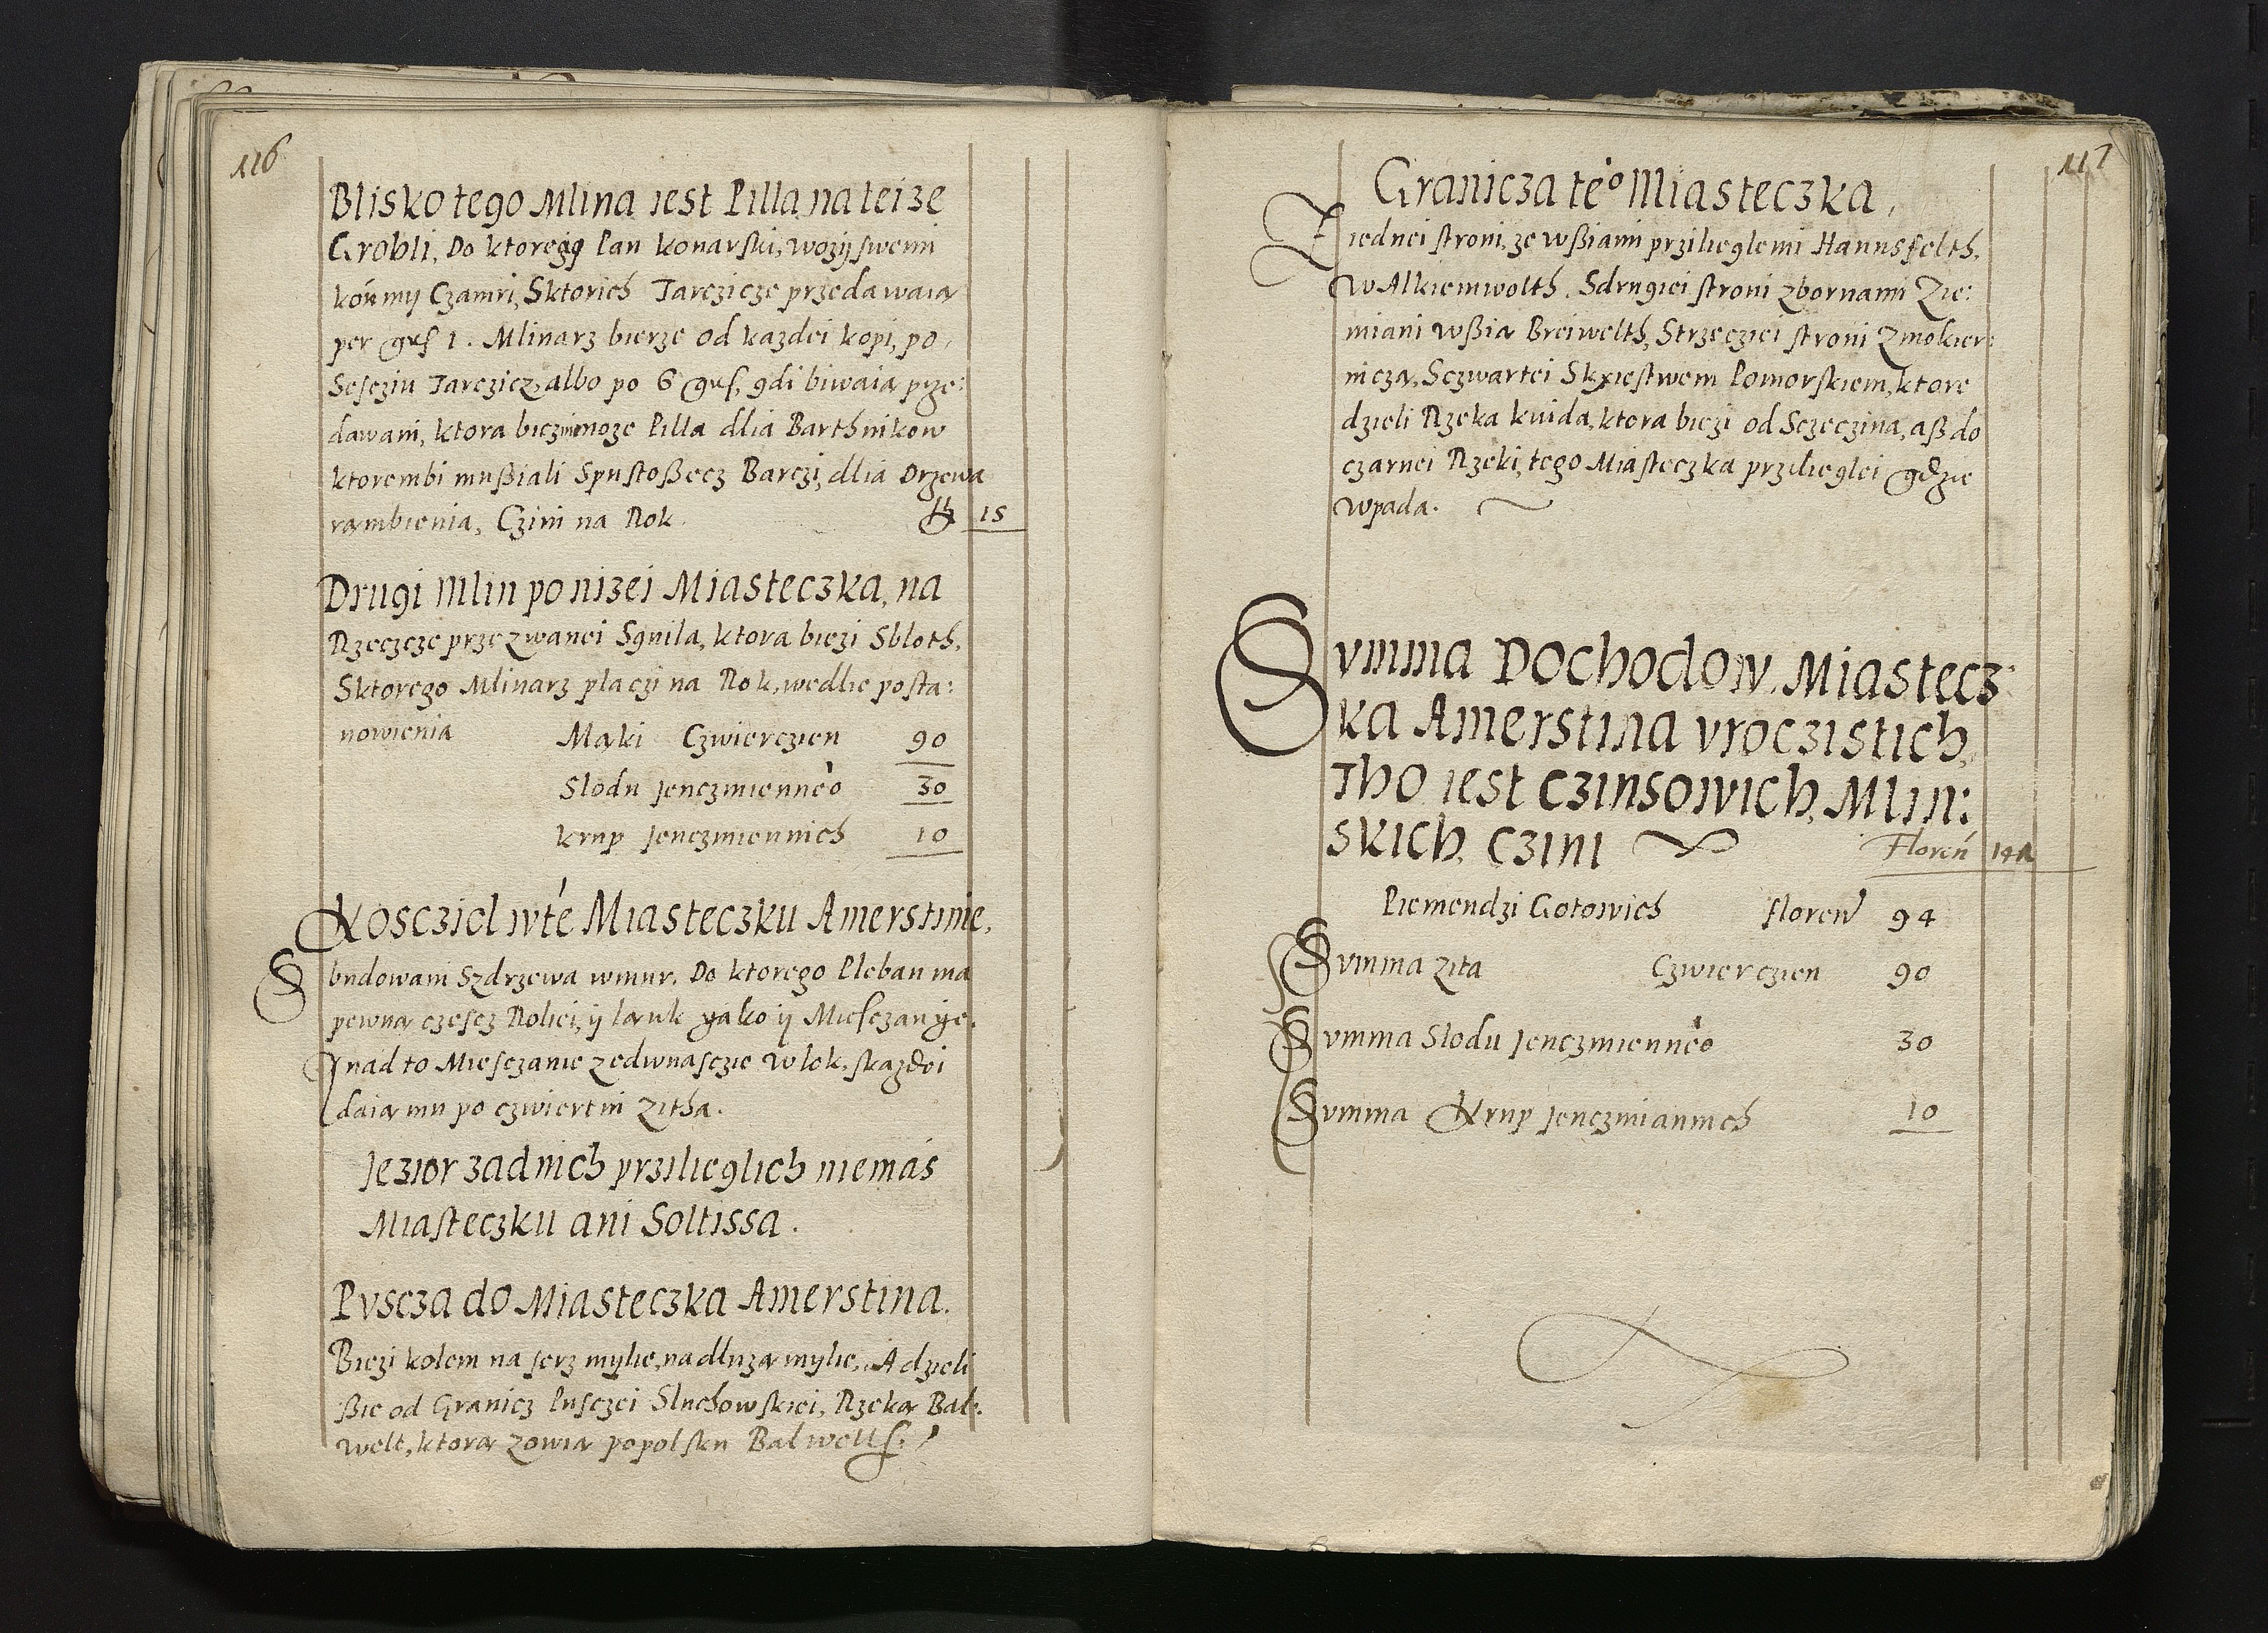 116
Blisko tego Mlina iest Pilla, na tei ze
Grobli, Do ktoregų Pan konarski, wozÿ swemi
końmÿ Czamri, Sktorich Tarczicze przedawaią
per gᵲſ 1. Mlinarz bierze od kazdei kopi, po,
Sesczin Tarczicz, albo po 6 gᵲſ, gdi biwaią prze:
dawani, ktora bicz nimoze Pilla dlia Barthnikow
ktorembi mußiali Spustoßecz Barczi, dlia Drzewa
rąmbienia, Czini na Rok. 15
Drugi Mlin ponizei Miasteczka, na
Rzeczcze przezwanei Sgnila, ktora biezi Sbloth,
Sktorego Mlinarz placzi na Rok, wedlie posta:
nowienia Mąki Czwierczien 90
Slodu Jenczmienneo 30
krup Jenczmiennich 10
Koscziol wte Miasteczku Amerstinie,
budowani Szdrzewa wmur. Do ktorego Pleban ma
pewną czescz Roliei, ÿ ląuk yako ÿ Miesczanÿe.
Y nad to Miesczanie zedwnasczie Wlok, skazdei
daią mu po czwiertni zitha.
Jezior zadnich przilieglich niemás
Miasteczku ani Soltissa.
Pvscza do Miasteczka Amerstina.
Biezi kolem na serz mÿlie, na dluzą mÿlie, A dzieli
ßie od Granicz Pusczei Sluchowskiei, Rzeką Bal:
welt, ktorą zowią popolsku Balwelts.
117
Granicza teo Miasteczka,
Z iednei stroni, ze wßiami przilieglemi Hannsfelth,
W Alkiemwolth. Sdrugiei stroni zbornami Zie:
miani wßią Breiwelth, Strzecziei stroni Zmokier:
niczą, Sczwartei Skxiestwem Pomorskiem, ktore
dzieli Rzeka kuida, ktora biezi od Sczeczina, aß do
czarnei Rzeki, tego Miasteczka przilieglei gdzie
wpada.
Svmma Dochodow, Miastecz:
ka Amerstina vroczistich,
Tho iest Czinsowich, Mlin:
skich, Czini Floreń
Piemendzi Gotowich floren 94
Svmma Zita Czwierczien 90
Svmma Slodu Jenczmienneo 30
Svmma Krup Jenczmiannich 10